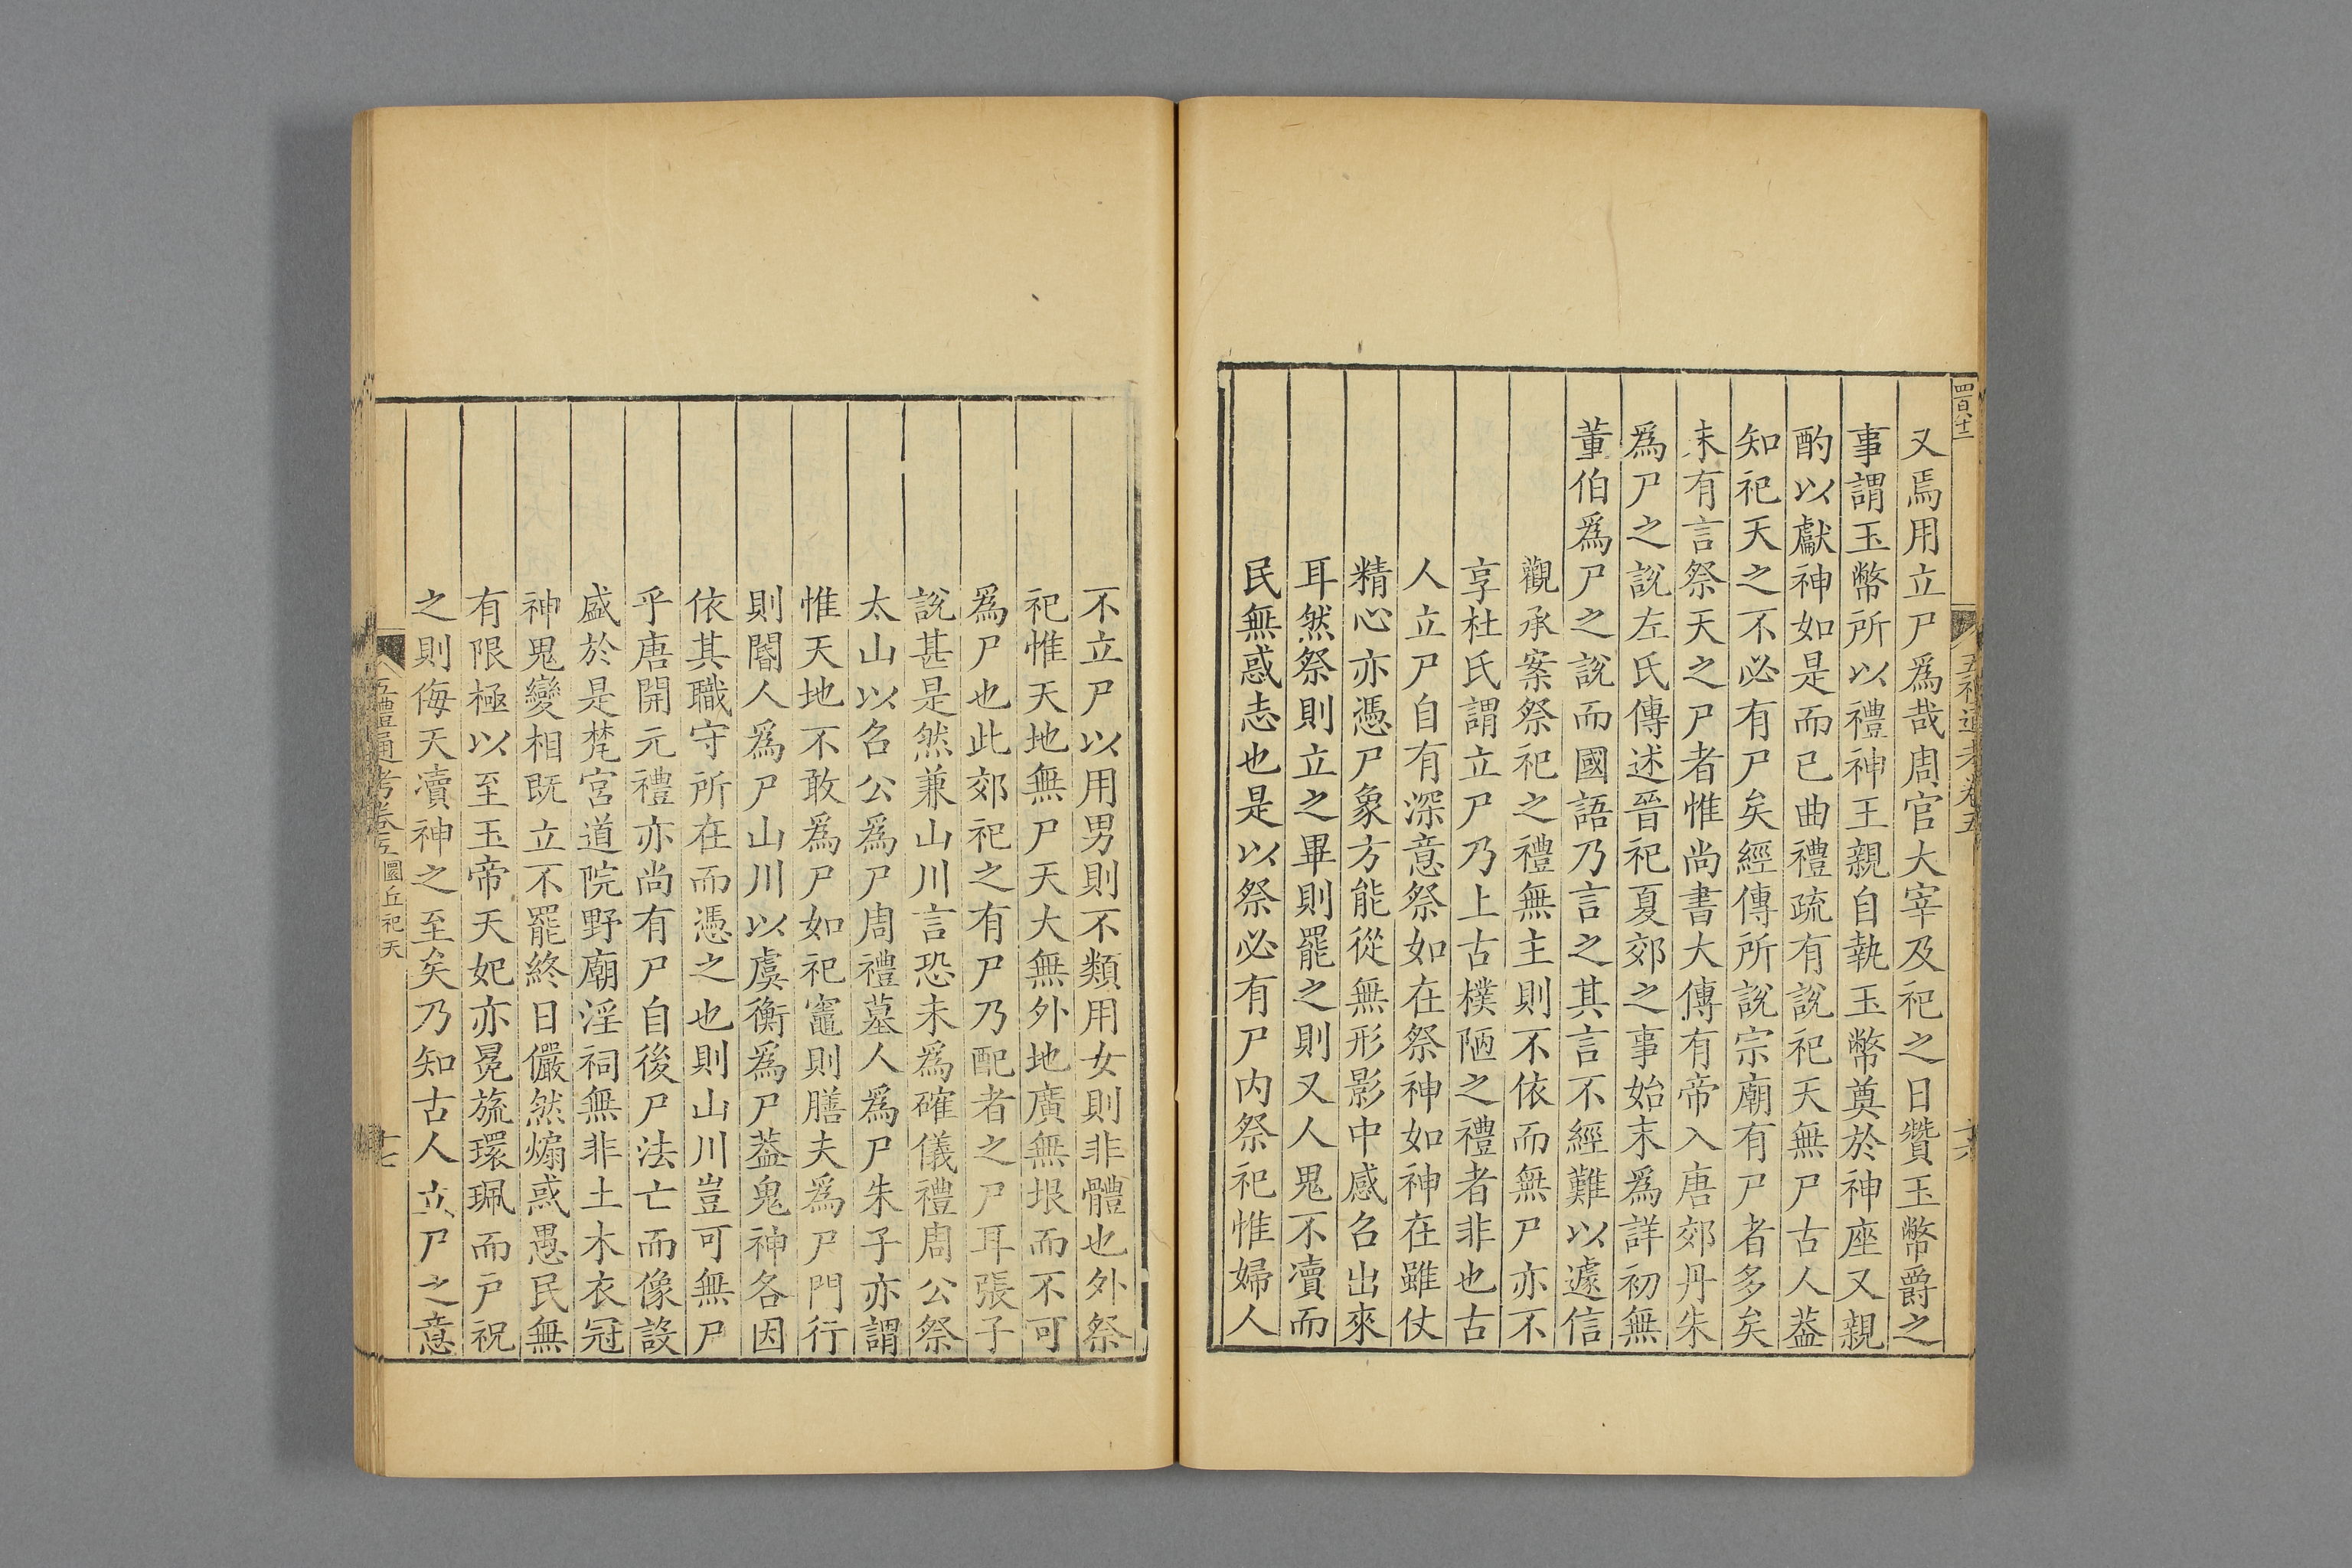 四百卆二
五禮通考卷五
十六
又焉用立尸爲哉周官大宰及祀之日贊玉幣爵之
事謂玉幣所以禮神王親自執玉幣奠於神座又親
酌以獻神如是而已曲禮疏有說祀天無尸古人葢
知祀天之不必有尸矣經傳所說宗廟有尸者多矣
未有言祭天之尸者惟尚書大傳有帝入唐郊丹朱
爲尸之說左氏傳述晉祀夏郊之事始末爲詳初無
董伯爲尸之說而國語乃言之其言不經難以遽信
觀承案祭祀之禮無主則不依而無尸亦不
享杜氏謂立尸乃上古樸陋之禮者非也古
人立尸自有深意祭如在祭神如神在雖仗
精心亦憑尸象方能從無形影中感召出來
耳然祭則立之畢則罷之則又人鬼不瀆而
民無惑志也是以祭必有尸内祭祀惟婦人
不立尸以用男則不類用女則非體也外祭
祀惟天地無尸天大無外地廣無垠而不可
爲尸也此郊祀之有尸乃配者之尸耳張子
說甚是然兼山川言恐未爲確儀禮周公祭
太山以召公爲尸周禮墓人爲尸朱子亦謂
惟天地不敢爲尸如祀竈則膳夫爲尸門行
則閽人爲尸山川以虞衡爲尸葢鬼神各因
依其職守所在而憑之也則山川豈可無尸
乎唐開元禮亦尚有尸自後尸法亡而像設
盛於是梵宮道院野廟淫祠無非土木衣冠
神鬼變相既立不罷終日儼然煽惑愚民無
有限極以至玉帝天妃亦冕旒環珮而戸祝
之則侮天瀆神之至矣乃知古人立尸之意
五禮通考卷五 圜丘祀天
十七